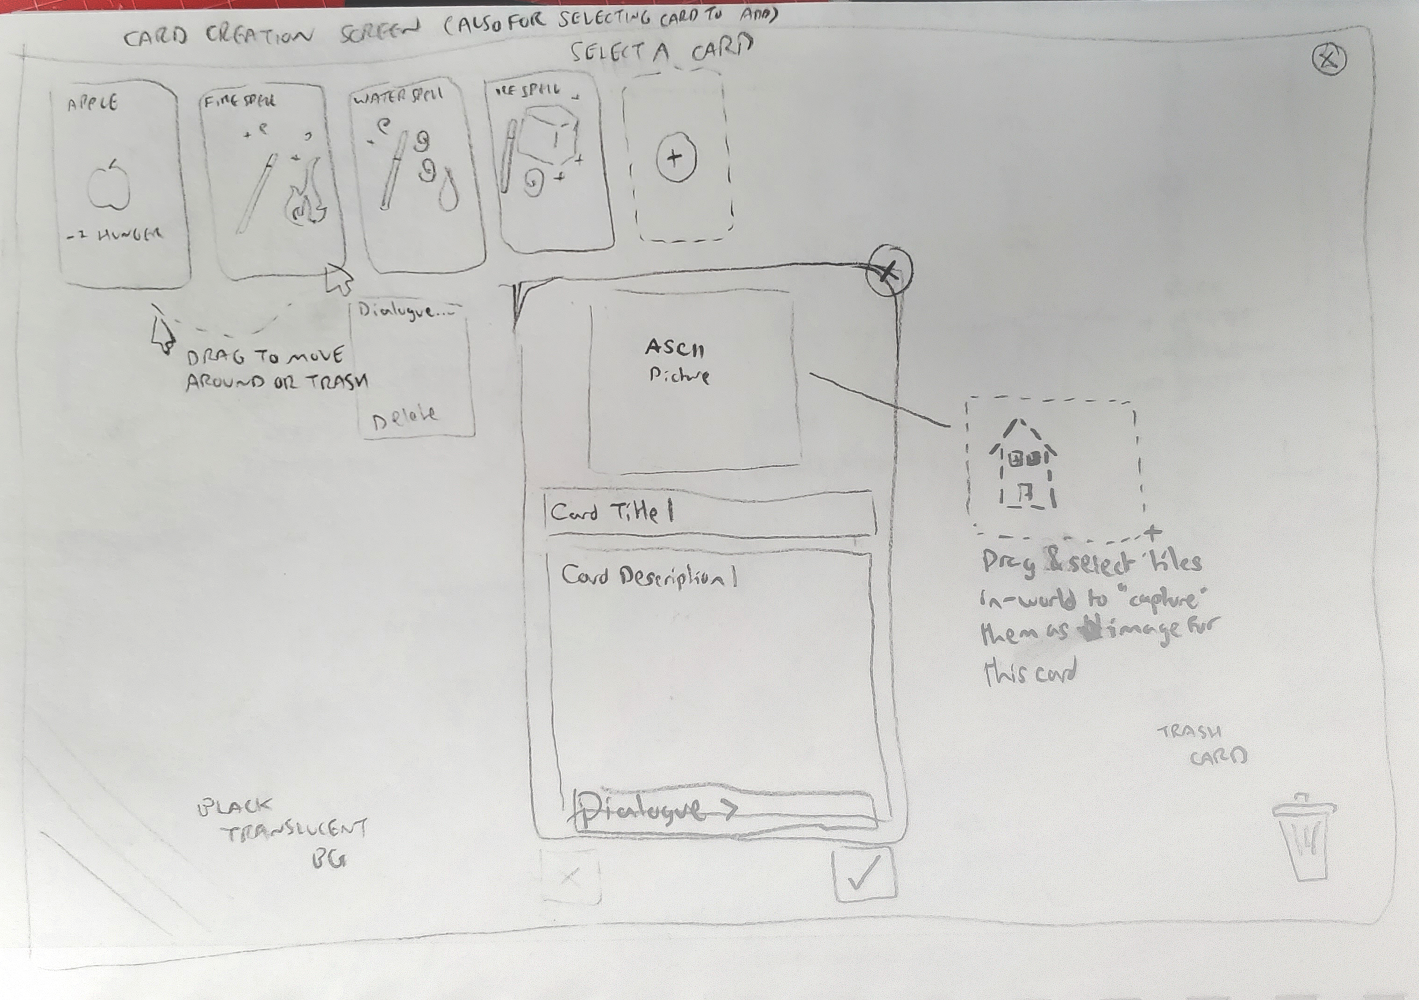 CARD CREATION SCREEN (ALSO FOR SELECTING CARD TO ADD)
SELECT A CARD
APPLE
-1 HUNGER
FIRE SPELL
WATER SPELL
ICE SPELL
DRAG TO MOVE
AROUND OR TRASH
Dialogue...
Delete
ASCII
Picture
Card Title|
Card Description|
Dialogue >
Drag & select tiles
in-world to "capture"
them as image for
this card
TRASH
CARD
BLACK
TRANSLUCENT
BG